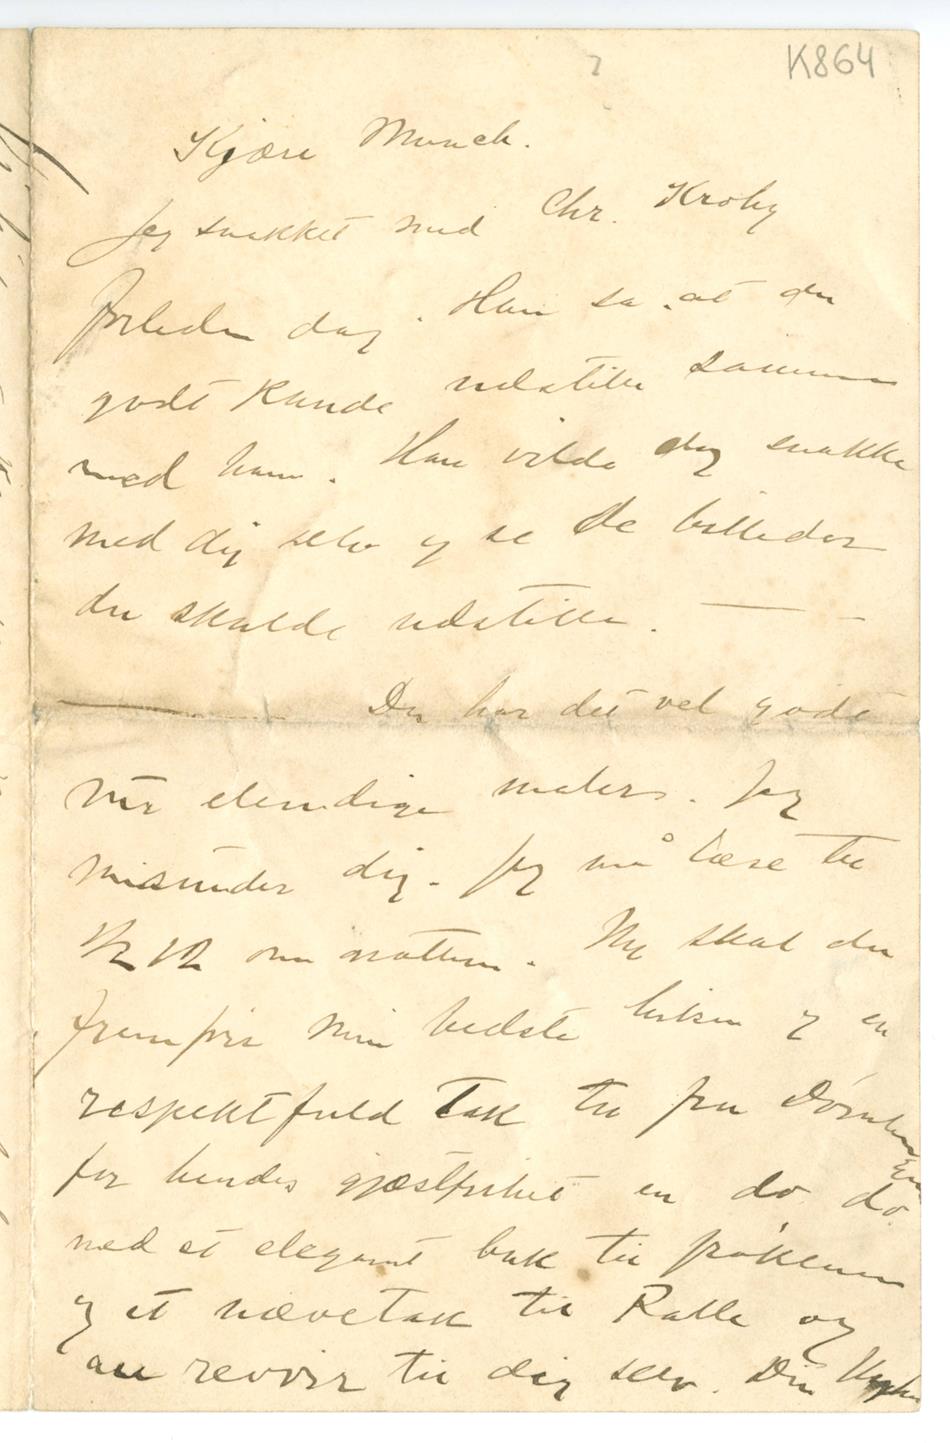 K864
Kjære Munch.
Jeg snakket med Chr. Krohg
forleden dag. Han sa at du
godt kunde udstille sammen
med ham. Han vilde dog snakke
med dig selv og se de billeder
du skulde udstille. —
— Du har det vel godt
din elendige maler. Jeg
misunder dig. Jeg må læse til
½ 12 om natten. Nu skal du
fremføre min bedste hilsen og en
respektfuld tak til fru
for hendes gjæstfrihet en do do
med et elegant buk til frøkenen
og et nævetak til Kalle og
au revoir til dig selv. Din